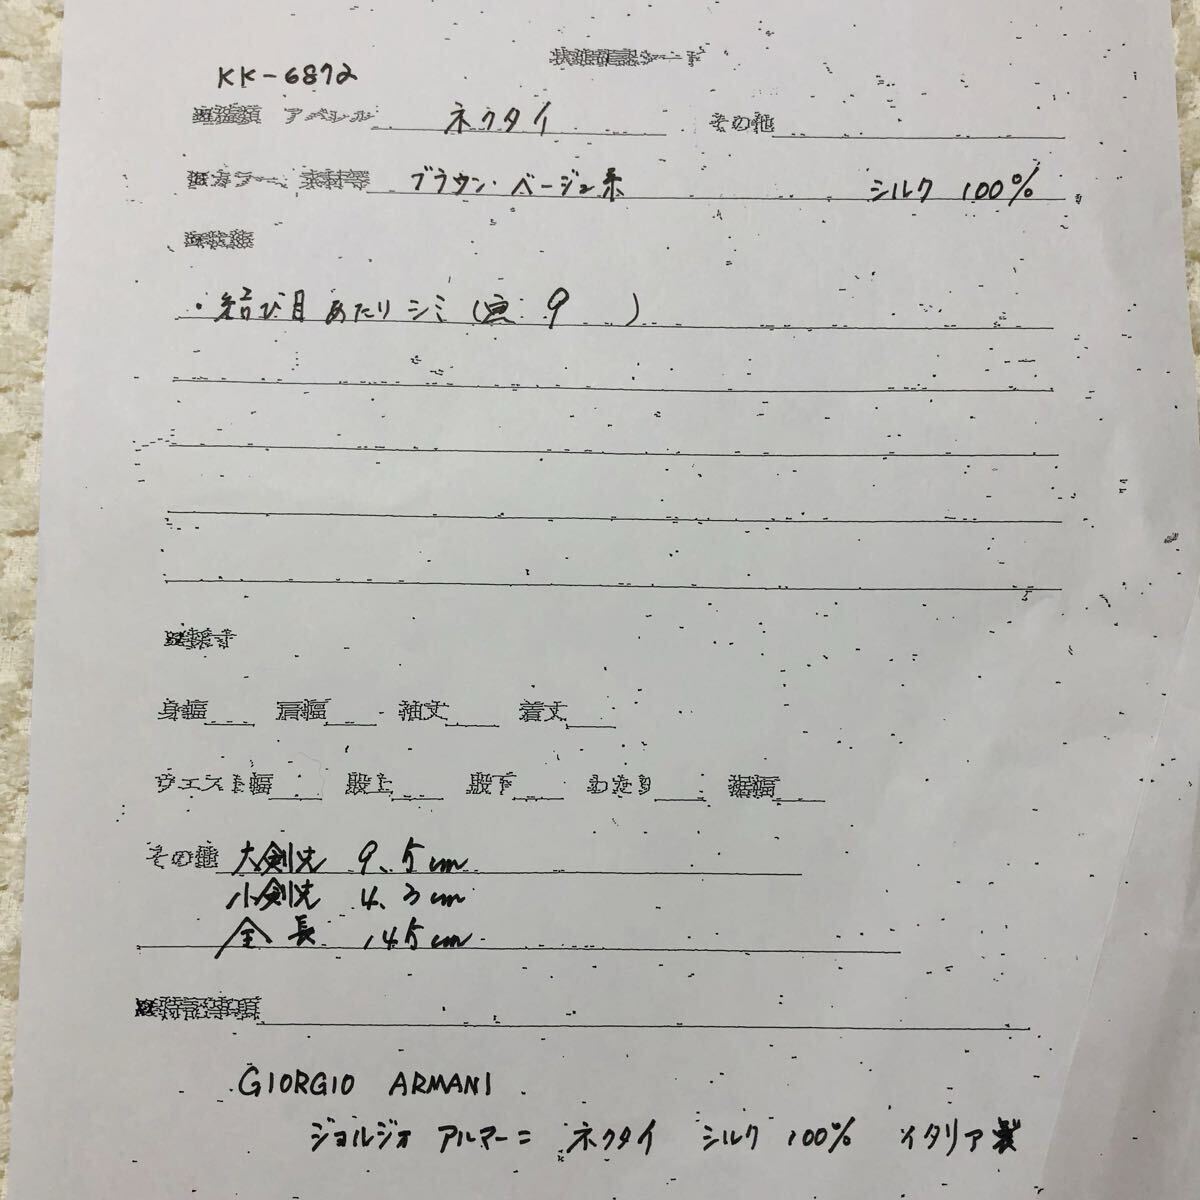 状態確認シート
KK-6872
種類 アパレル ネクタイ その他
カラー、素材等 ブラウン・ベージュ系 シルク 100%
状態
・結び目あたりシミ(写:9 )
採寸
身幅 肩幅 袖丈 着丈
ウエスト幅 股上 股下 わたり 裾幅
その他 大剣先 9.5cm
小剣先 4.3cm
全長 145cm
特記事項
GIORGIO ARMANI
ジョルジオ アルマーニ ネクタイ シルク 100% イタリア製